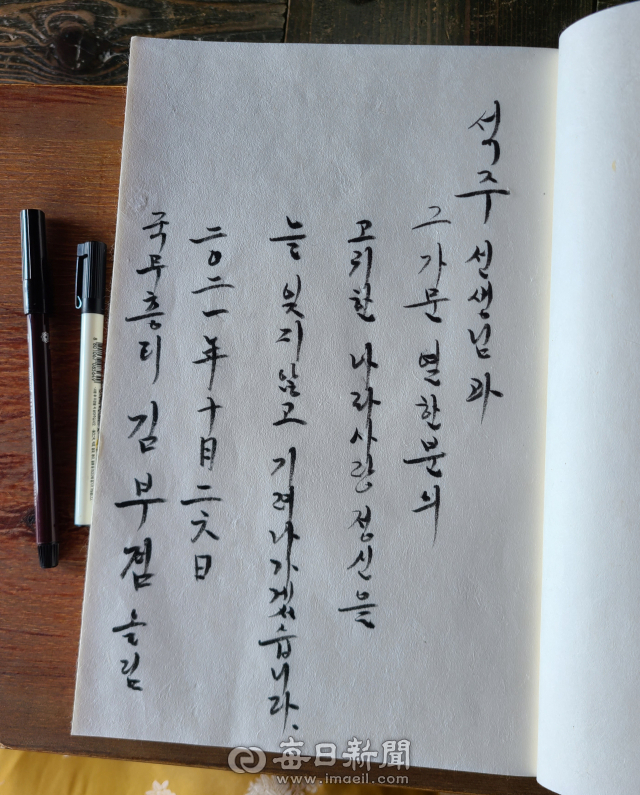 석주 선생님과
그 가문 열한분의
고귀한 나라사랑 정신을
늘 잊지않고 기려나가겠습니다.
二〇二一年 十月 二六日
국무총리 김부겸 올림
每日新聞
www.imaeil.com